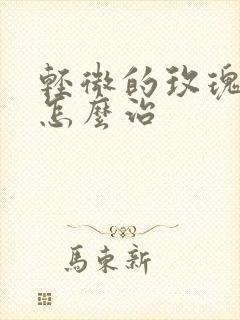 輕微的玫瑰
怎麼治
馬東新